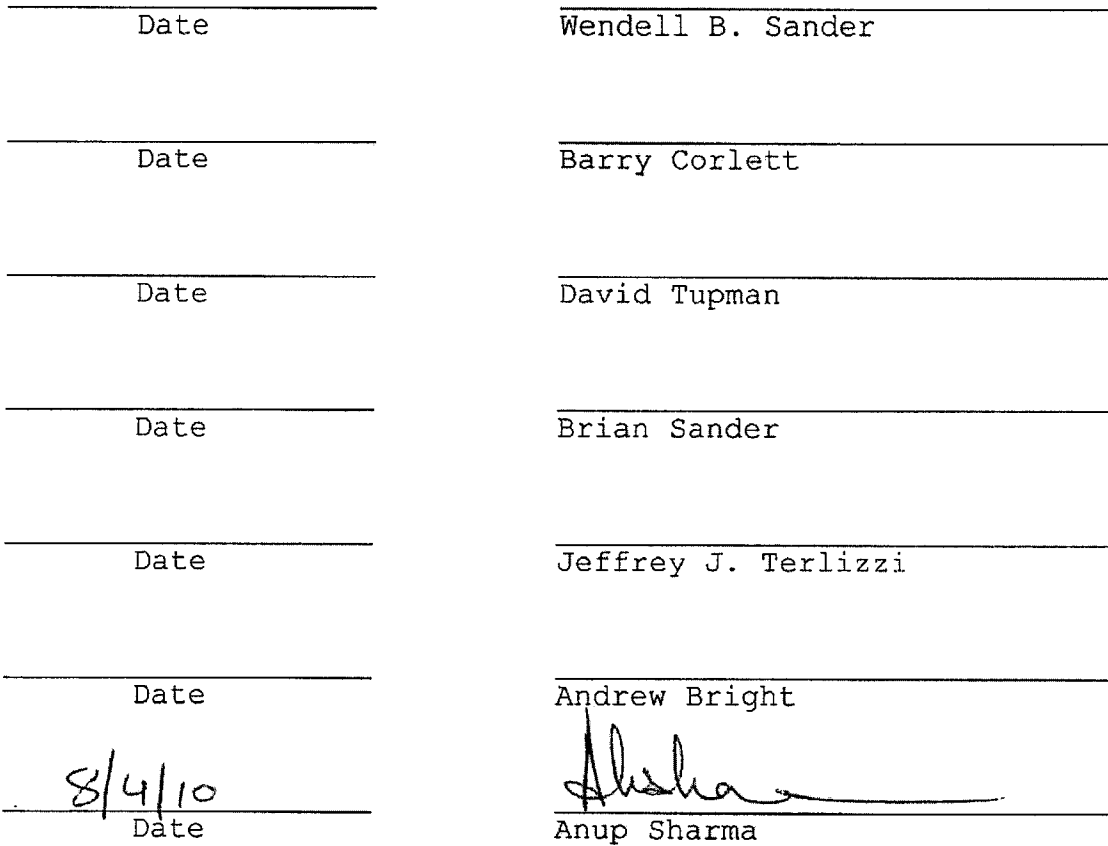 Date Wendell B. Sander
Date Barry Corlett
Date David Tupman
Date Brian Sander
Date Jeffrey J. Terlizzi
Date Andrew Bright
8/4/10
Date Anup Sharma